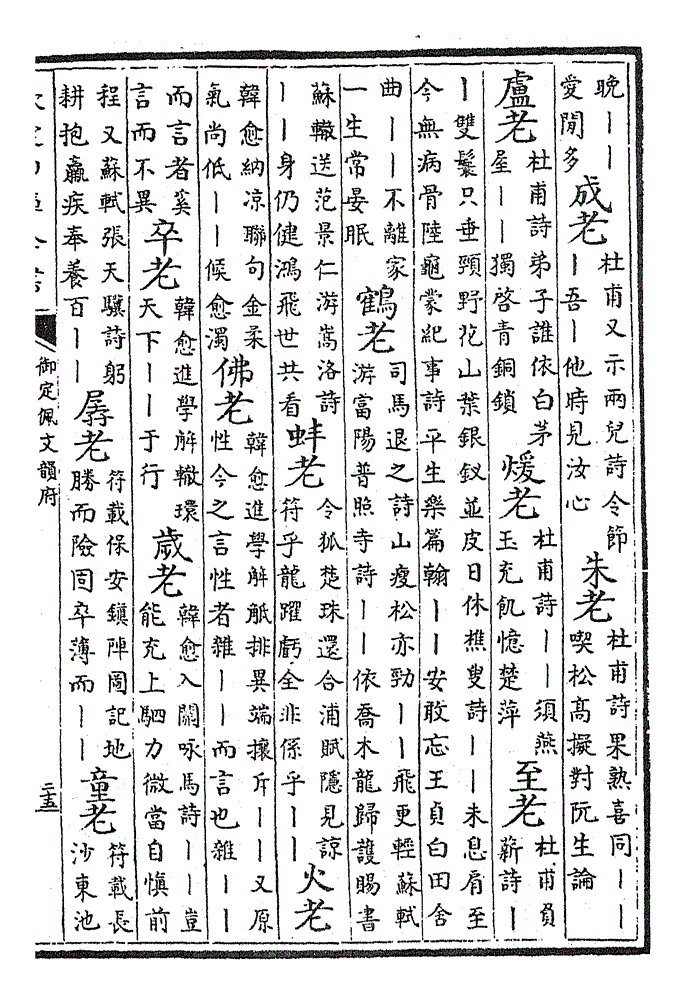 晚｜｜
愛閒多
成老
杜甫又示兩兒詩令節
｜吾｜他時見汝心
朱老
杜甫詩果熟喜同｜｜
喫松高擬對阮生論
盧老
杜甫詩弟子誰依白茅
屋｜｜獨啓青銅鎖
煖老
杜甫詩｜｜須燕
玉充飢憶楚萍
至老
杜甫負
薪詩｜
｜雙鬟只垂頸野花山葉銀釵並皮日休樵叟詩｜｜未息肩至
今無病骨陸龜蒙紀事詩平生樂篇翰｜｜安敢忘王貞白田舍
曲｜｜不離家
一生常晏眠
鶴老
司馬退之詩山瘦松亦勁｜｜飛更輕蘇軾
游富陽普照寺詩｜｜依喬木龍歸護賜書
蘇轍送范景仁游嵩洛詩
｜｜身仍健鴻飛世共看
蚌老
令狐楚珠還合浦賦隱見諒
符乎龍躍虧全非係乎｜｜
火老
韓愈納凉聯句金柔
氣尚低｜｜候愈濁
佛老
韓愈進學解觝排異端攘斥｜｜又原
性今之言性者雜｜｜而言也雜｜｜
而言者奚
言而不異
卒老
韓愈進學解轍環
天下｜｜于行
歲老
韓愈入關咏馬詩｜｜豈
能充上駟力微當自慎前
程又蘇軾張天驥詩躬
耕抱羸疾奉養百｜｜
孱老
符載保安鎮陣圖記地
勝而險固卒薄而｜｜
童老
符載長
沙東池
御定佩文韻府
二十五